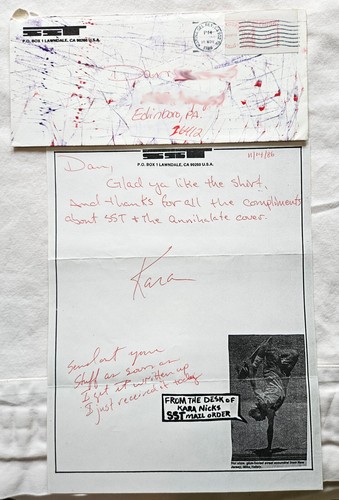 SST
P.O. BOX 1 LAWNDALE, CA 90260 U.S.A.
PM
1986
Dan
Edinboro, PA.
16412
SST
P.O. BOX 1 LAWNDALE, CA 90260 U.S.A.
11/14/86
Dan,
Glad ya like the shirt,
And thanks for all the compliments
about SST + the Annihalate cover.
Kara
Send out your
stuff as soon as
I get it written up
I just received it today
FROM THE DESK OF
KARA NICKS
SST MAIL ORDER